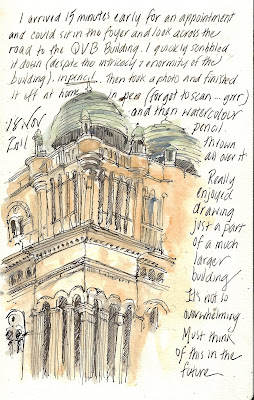 I arrived 15 minutes early for an appointment
and could sit in the foyer and look across the
road to the QVB Building. I quickly scribbled
it down (despite the intricacy & enormity of the
building). in pencil.. then took a photo and finished
it off at home in pen (forgot to scan... grrr)
and then watercolour
pencil
thrown
all over it
18 Nov
2011
Really
enjoyed
drawing
just a part
of a much
larger
building
It's not so
overwhelming.
Must think
of this in the
future